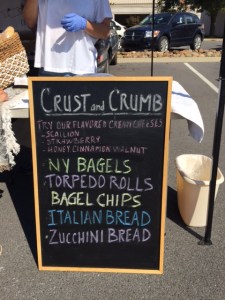 CRUST and CRUMB
TRY OUR FLAVORED CREAM CHEESES
- SCALLION
- STRAWBERRY
- HONEY CINNAMON WALNUT
- NY BAGELS
- TORPEDO ROLLS
BAGEL CHIPS
- ITALIAN BREAD
- ZUCCHINI BREAD